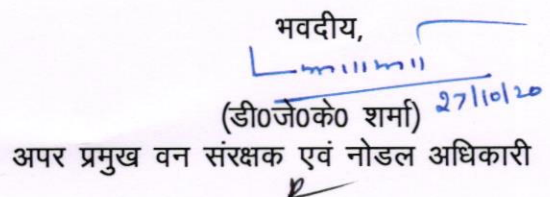 भवदीय,
27/10/20
(डी0जे0के0 शर्मा)
अपर प्रमुख वन संरक्षक एवं नोडल अधिकारी